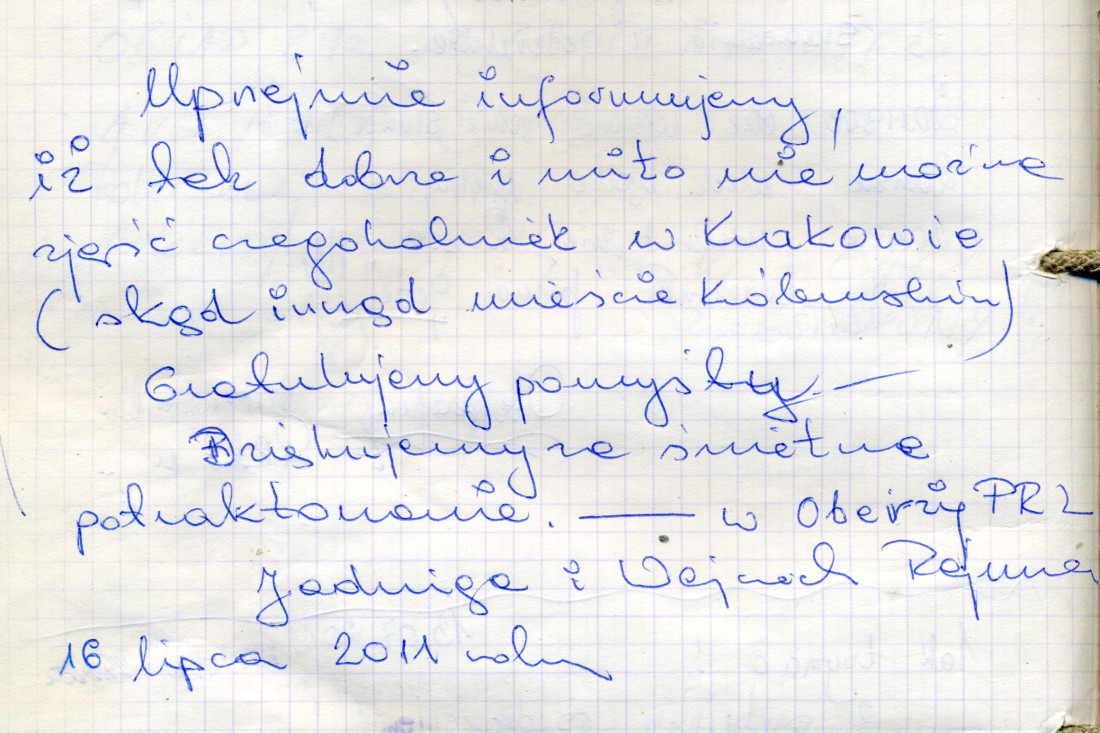 Uprzejmie informujemy,
iż tak dobrze i miło nie można
zjeść czegokolwiek w Krakowie
(skąd inąd mieście Królewskim)
Gratulujemy pomysłu —
Dziękujemy za świetne
potraktowanie. — w Oberży PRL
Jadwiga i Wojciech
16 lipca 2011 roku